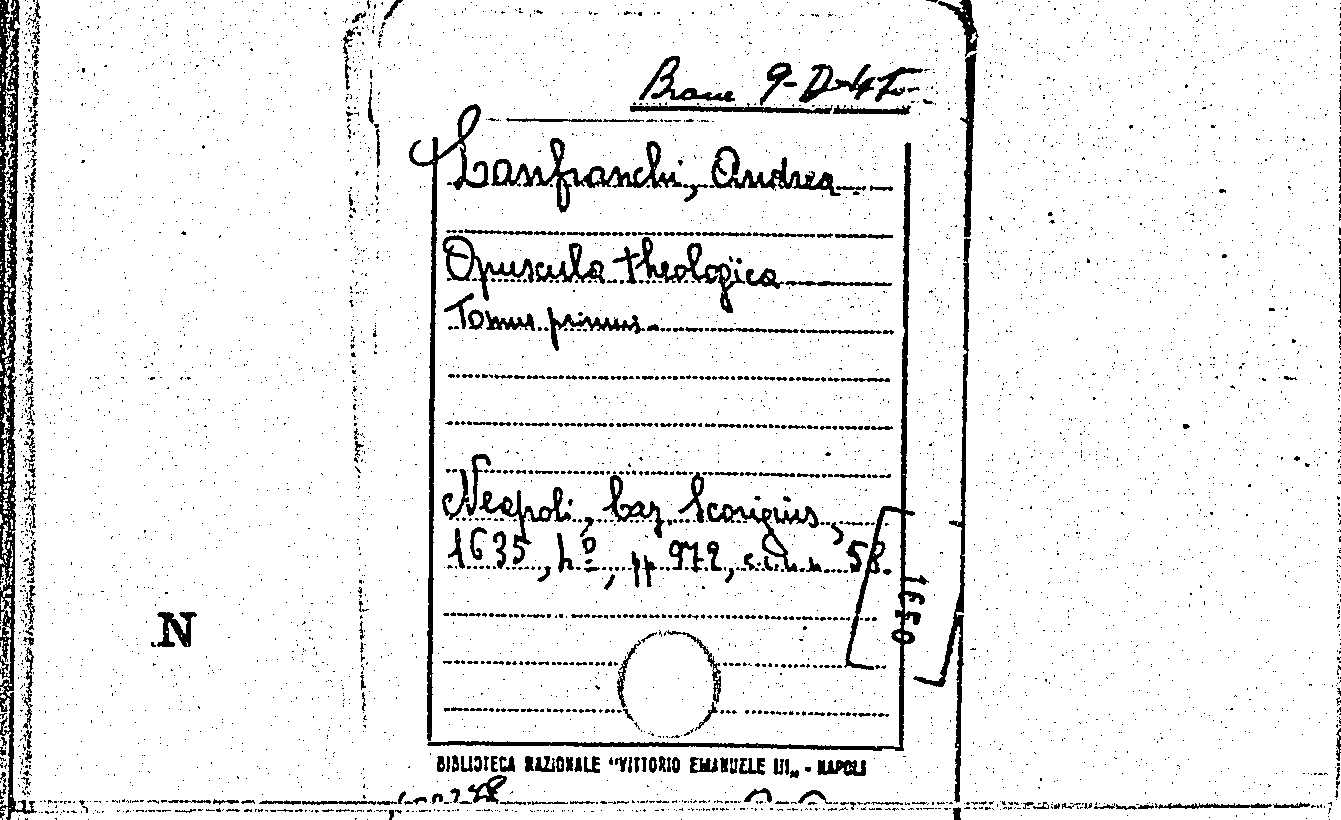 Branc 9-D-47.
Lanfranchi, Andrea
Opuscula theologica
Tomus primus.
Neapoli, Laz Scorigius,
1635, 4º, pp 972, s.i.n.n 58.
1650
N
BIBLIOTECA NAZIONALE "VITTORIO EMANUELE III„ - NAPOLI